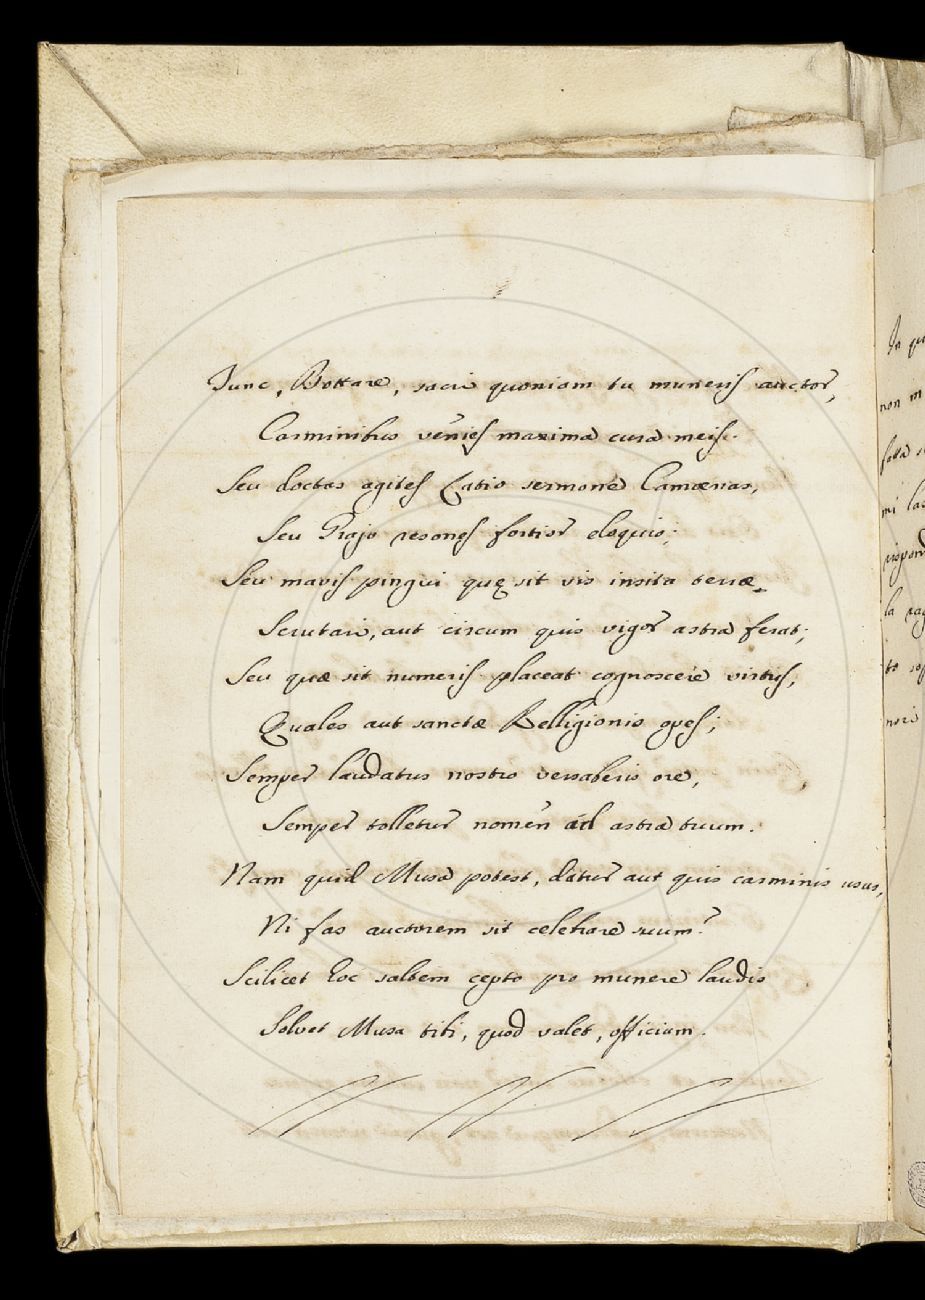 Tunc, Bottare, sacri quoniam tu muneris auctor,
Carminibus venies maxima cura meis.
Seu doctas agites Latio sermone Camœnas,
Seu Grajo resones fortior eloquio;
Seu mavis pingui quę sit vis insita terræ
Scrutari, aut circum quis vigor astra ferat;
Seu quæ sit numeris placeat cognoscere virtus,
Quales aut sanctæ Relligionis opes;
Semper laudatus nostro versaberis ore,
Semper tolletur nomen ad astra tuum.
Nam quid Musa potest, datur aut quis carminis usus,
Ni fas auctorem sit celebrare suum?
Scilicet hoc saltem cepto pro munere laudis
Solvet Musa tibi, quod valet, officium.
In
non m
fatta
mi las
rispond
la rag
to sop